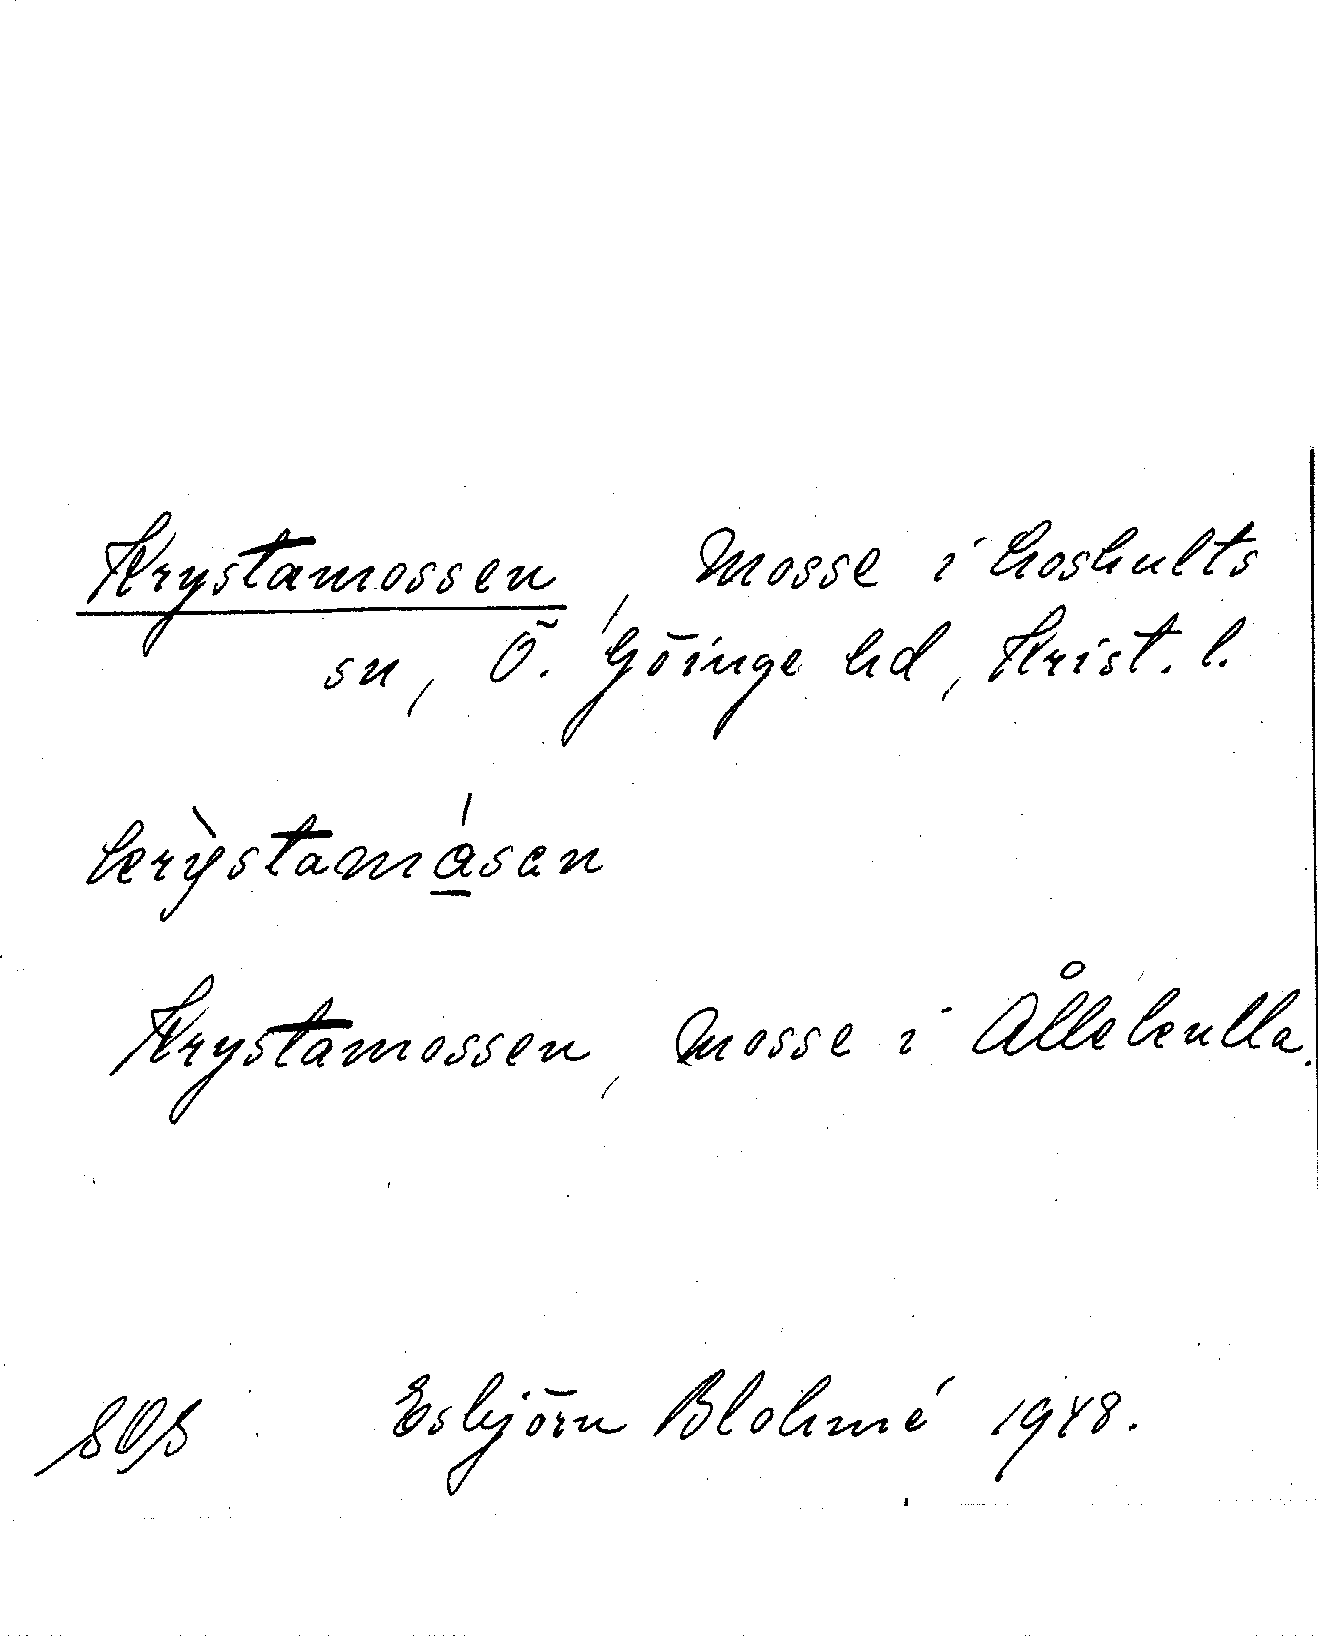 Krystamossen, Mosse i Loshults
sn, Ö. Göinge hd, Krist. l.
krỳstamásen
Krystamossen, Mosse i Ållekulla.
SOS Esbjörn Blohmé 1948.